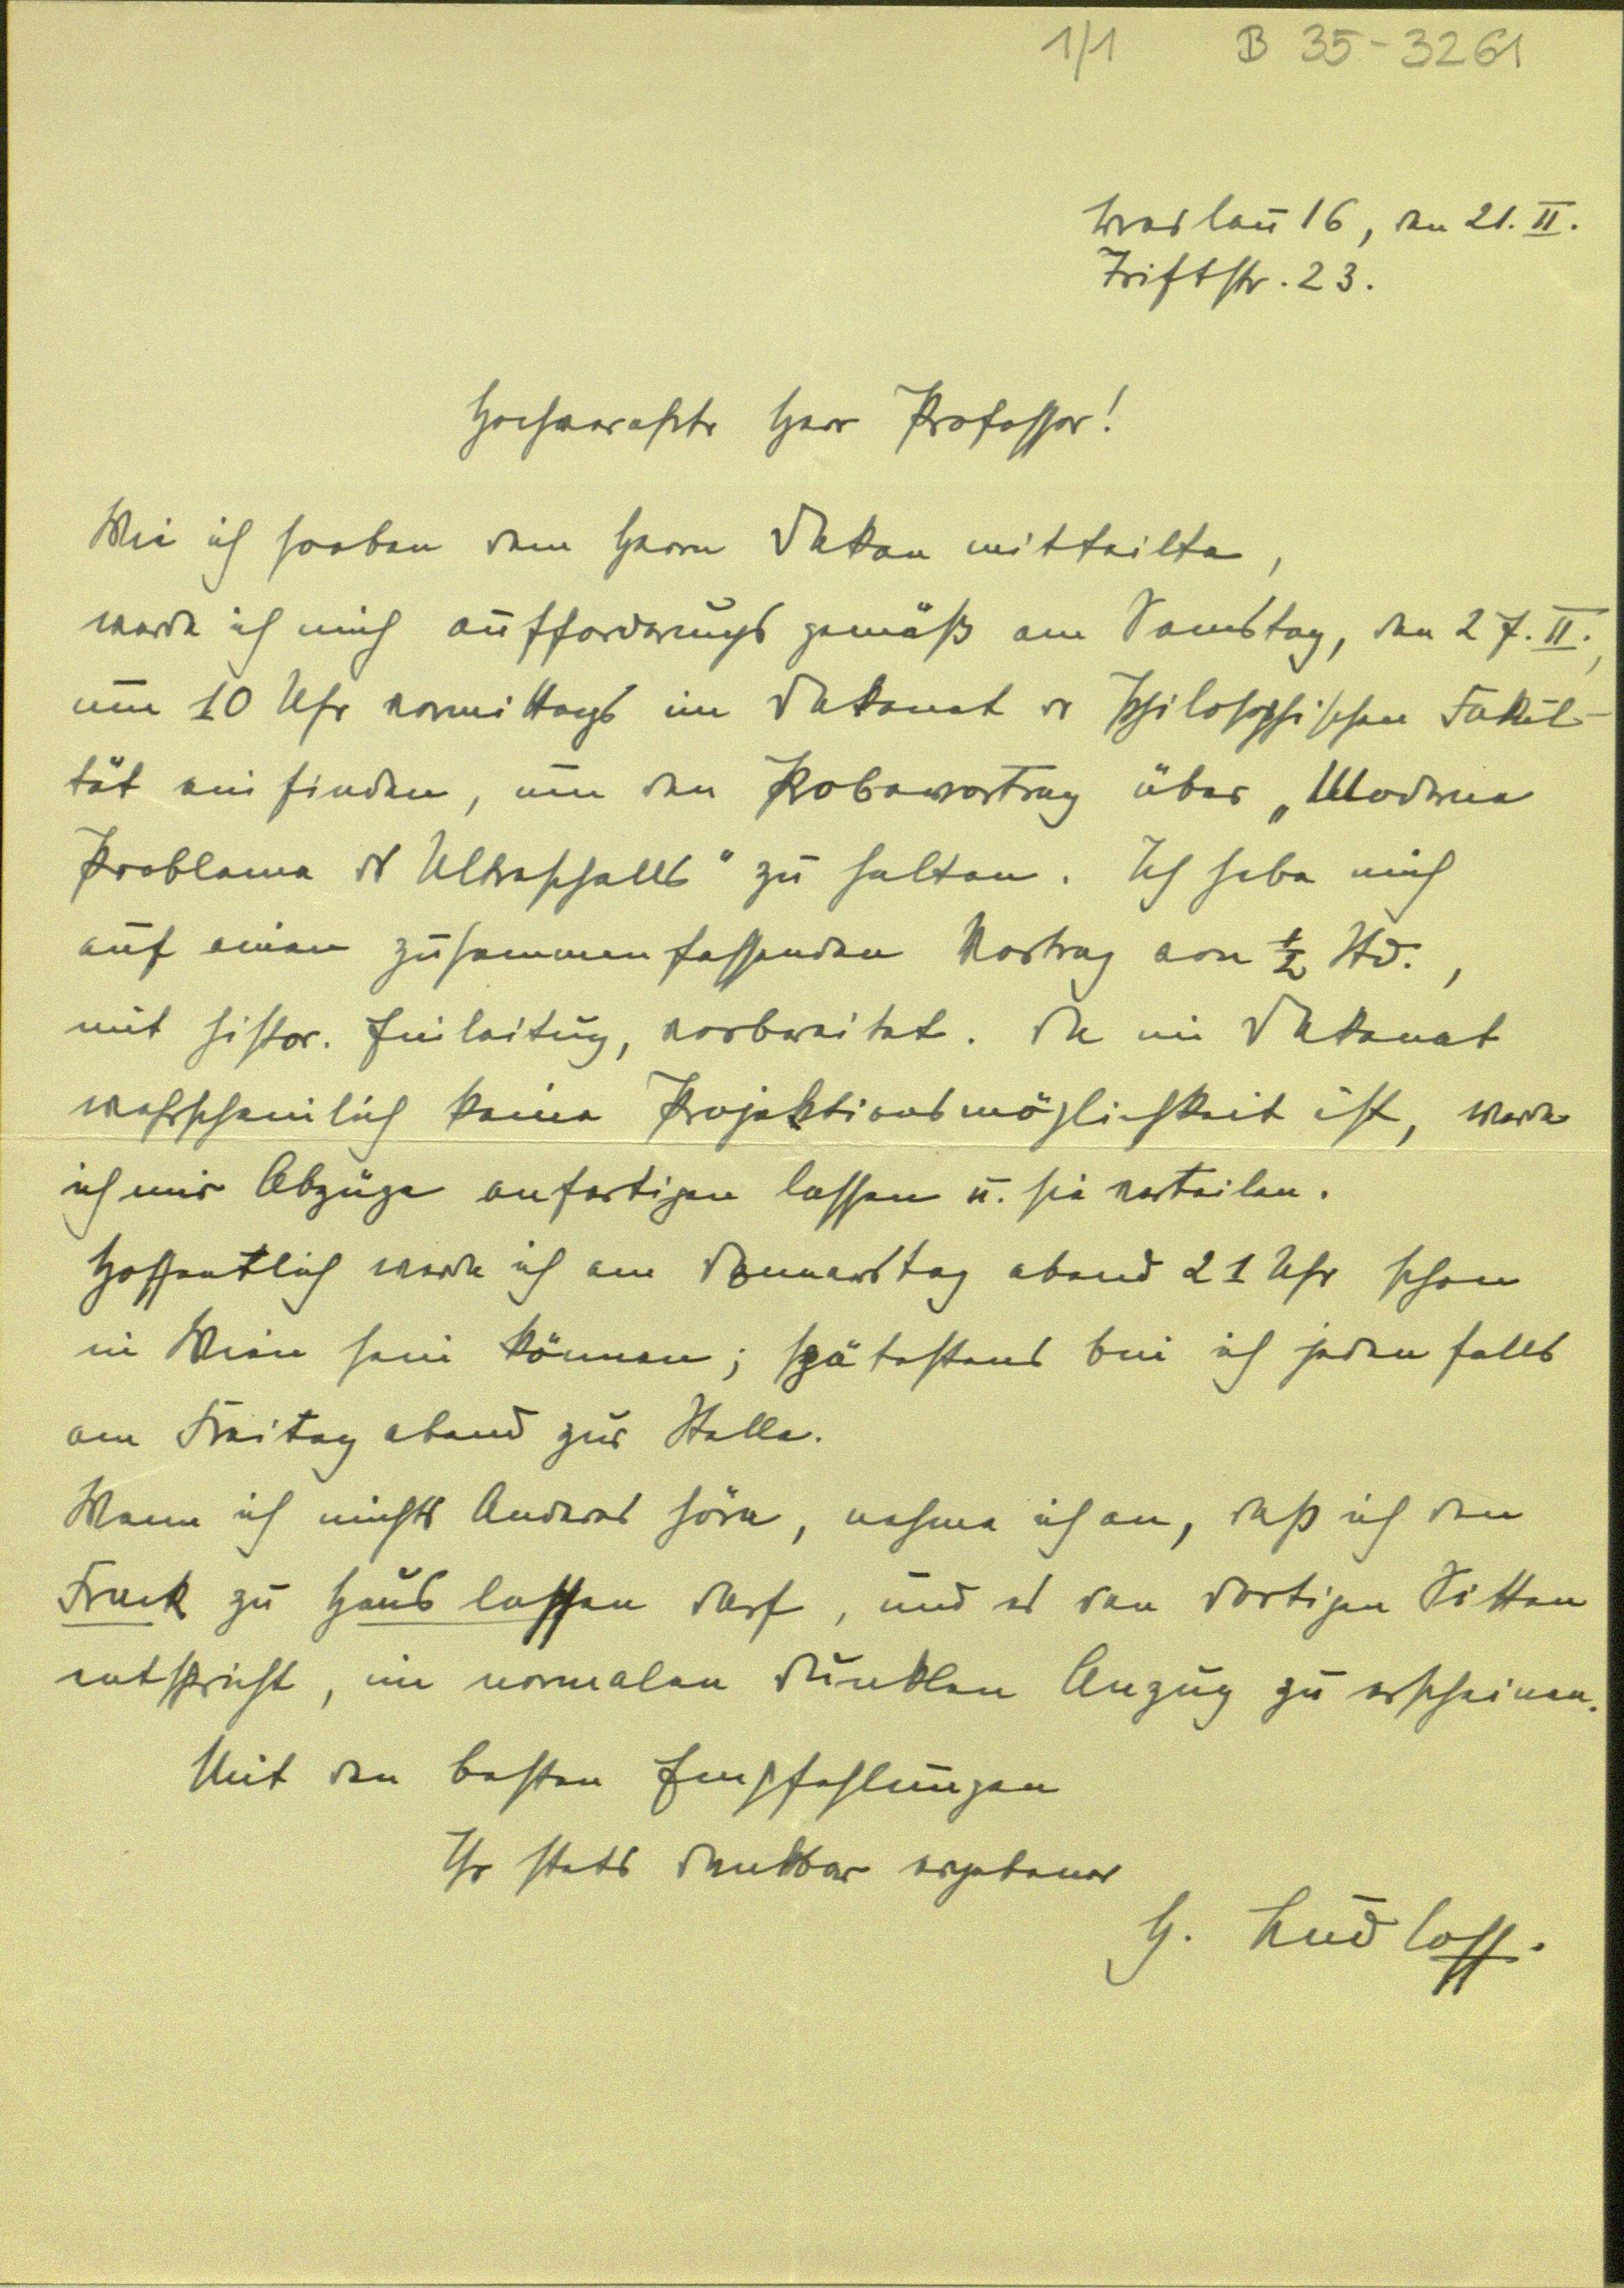 1/1 B 35-3261
Breslau 16, den 21. II.
Triftstr. 23.
Hochverehrter Herr Professor!
Wie ich soeben dem Herrn Dekan mitteilte,
werde ich mich aufforderungsgemäß am Samstag, den 27. II.,
um 10 Uhr vormittags im Dekanat der Philosophischen Fakul-
tät einfinden, um den Probevortrag über „Moderne
Probleme des Ultraschalls" zu halten. Ich habe mich
auf einen zusammenfassenden Vortrag von ½ Std.,
mit histor. Einleitung, vorbereitet. Da im Dekanat
wahrscheinlich keine Projektionsmöglichkeit ist, werde
ich mir Abzüge anfertigen lassen u. sie verteilen.
Hoffentlich werde ich am Donnerstag abend 21 Uhr schon
in Wien sein können; spätestens bin ich jedenfalls
am Freitag abend zur Stelle.
Wenn ich nichts Anderes höre, nehme ich an, daß ich den
Frack zu Haus lassen darf, und es den dortigen Sitten
entspricht, im normalen dunklen Anzug zu erscheinen.
Mit den besten Empfehlungen
Ihr stets dankbar ergebener
H. Ludloff.